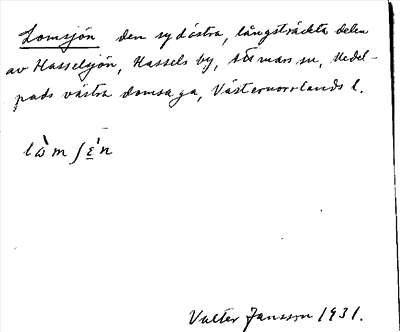 Lomsjön den sydöstra, långsträckta delen
av Hasselsjön, Hassels by, sn, Medel-
pads västra domsaga, Västernorrlands l.
Valter Jansson 1931.